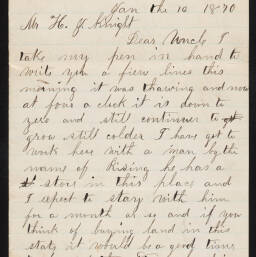 Jan the 10 1870
Mr H. Y. Knight
Dear Uncle I
take my pen in hand to
write you a fiew lines this
morning it was thawing and now
at four a clock it is down to
zero and still continues to
grow still colder I have got to
work here with a man by the
name of Rising he has a
store in this place and
I expect to stay with him
for a month or so and if you
think of buying land in this
state it would be a good time